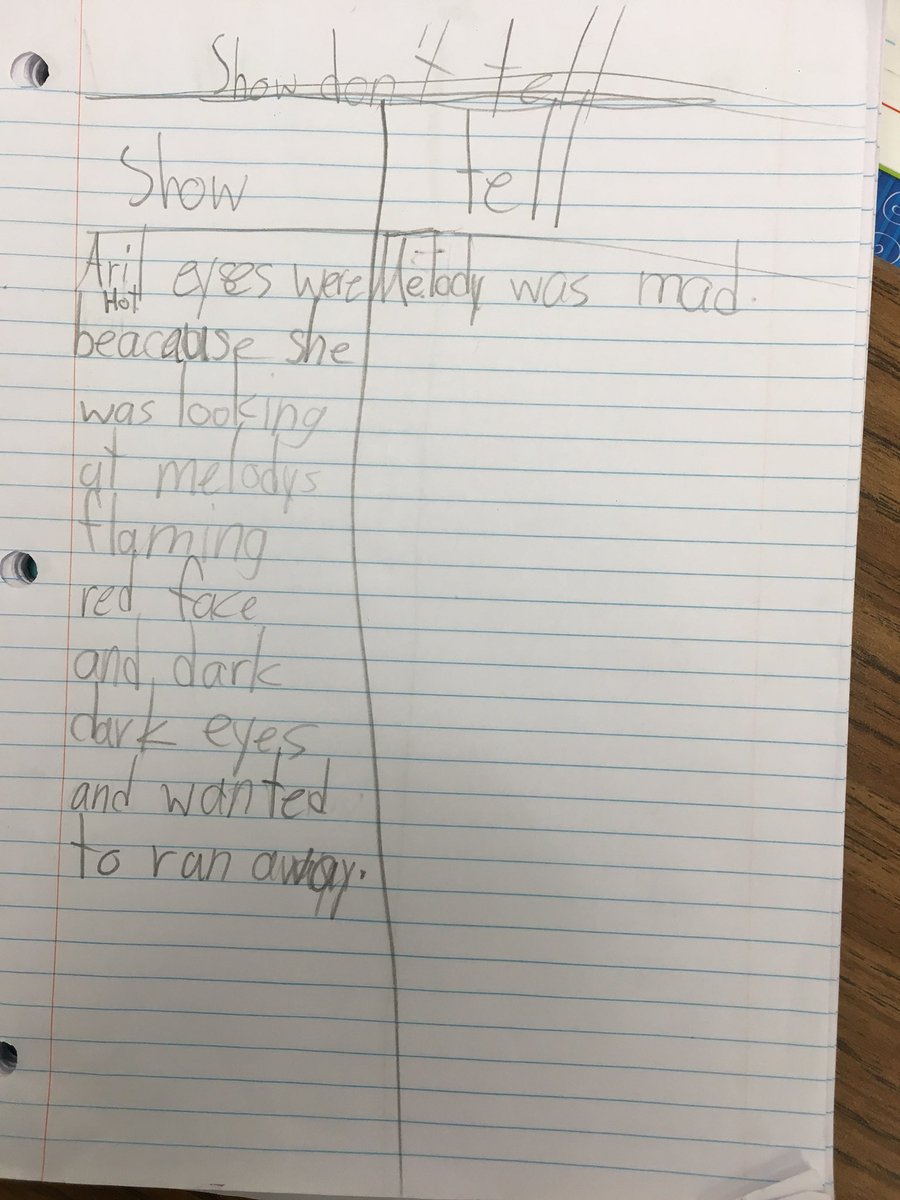 Show don't tell
Show
tell
Aril eyes were
Hot
beacause she
was looking
at melodys
flaming
red face
and dark
dark eyes
and wanted
to ran away.
Melody was mad.